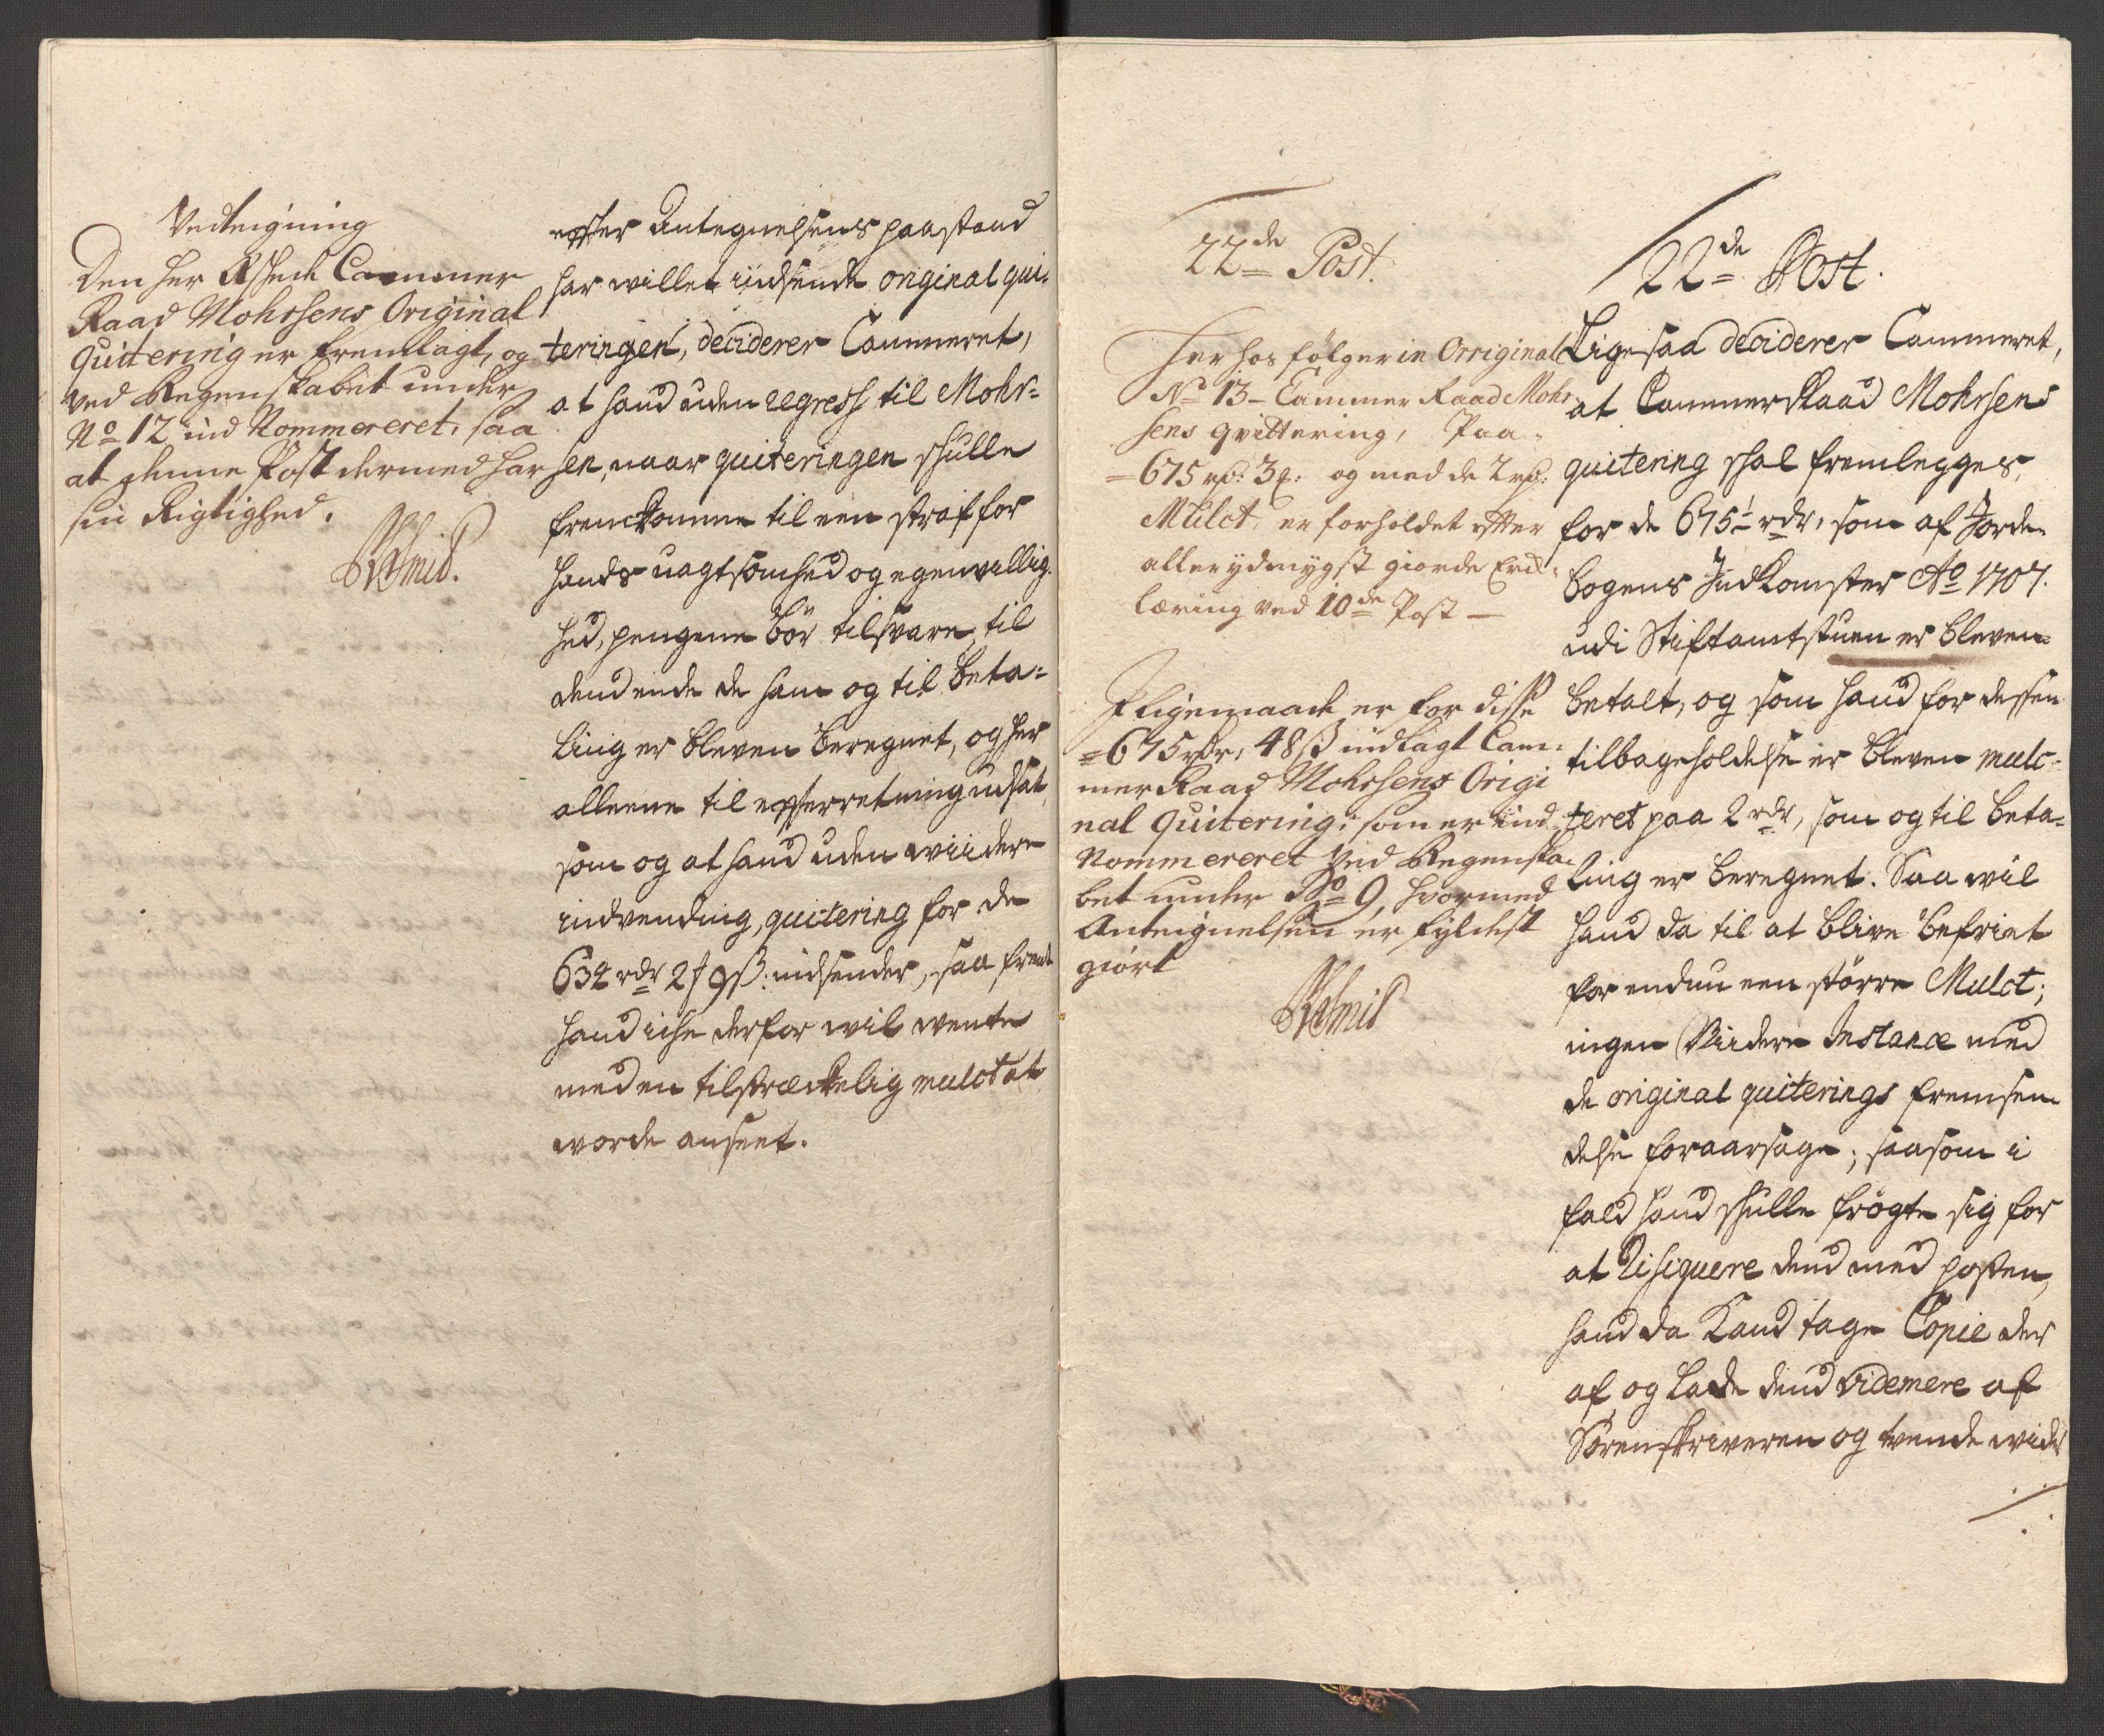 Vedteigning
Den her Cammer
Raad Mohrsens Original
Quitering er fremlagt, og
ved Regenskabet under
No 12 ind Nommereret, saa
at denne Post dermed har
sin Rigtighed.

effter Antegnelsens paastand
har willet indsende original qui-
teringen, deciderer Cammeret,
at hand uden regress til Mohr-
sen, naar quiteringen skulle
fremkomme til een straf for
hands uagtsomhed og egenvillig-
hed, pengene bör tilsvare, til
dend ende de ham og til beta-
ling er bleven beregnet, og her
alleene til effterretning udsat,
som og at hand uden wiidere
indvending, quitering for de
634 rdr 2 f 9 ß: indsender, saa fremt
hand iche derfor wil wente
med en tilstræckelig mulct at
worde anseet.

22de Post.
Her hos følger in Orriginal
No 13 - Cammer Raad Mohr-
sens qvittering, Paa
= 675 rd: 3 f: og med de 2 rd:
Mulct, er forholdet effter
allerydmygst giorde Erck-
læring ved 10de Post —
Ligemaade er for disse
= 675 rdr, 48 ß indlagt Cam-
mer Raad Mohrsens Origi
nal Quitering, som er ind
Nommereret ved Regenska-
bet under No 9, hvormed
Anteignelsen er fyldest
giort

22de Post.
Lige saa deciderer Cammeret,
at Cammer Raad Mohrsens
quitering skal fremlegges,
for de 675½ rdr, som af Jorde-
bogens Indkomster Ao 1707.
udi Stiftamtstuen er bleven
betalt, og som hand for dessen
tilbageholdelse er bleven mulc-
teret paa 2 rdr, som og til beta-
ling er beregnet. Saa wil
hand da til at blive befriet
for endnu een större Mulct,
ingen Wiidere Instance med
de original quiterings fremsen-
delse foraarsage; saasom i
fald hand skulle frögte sig for
at Risiquere dend med posten,
hand da Kand tage Copie der
af og lade dend videmere af
Sorenskriveren og tvende wider